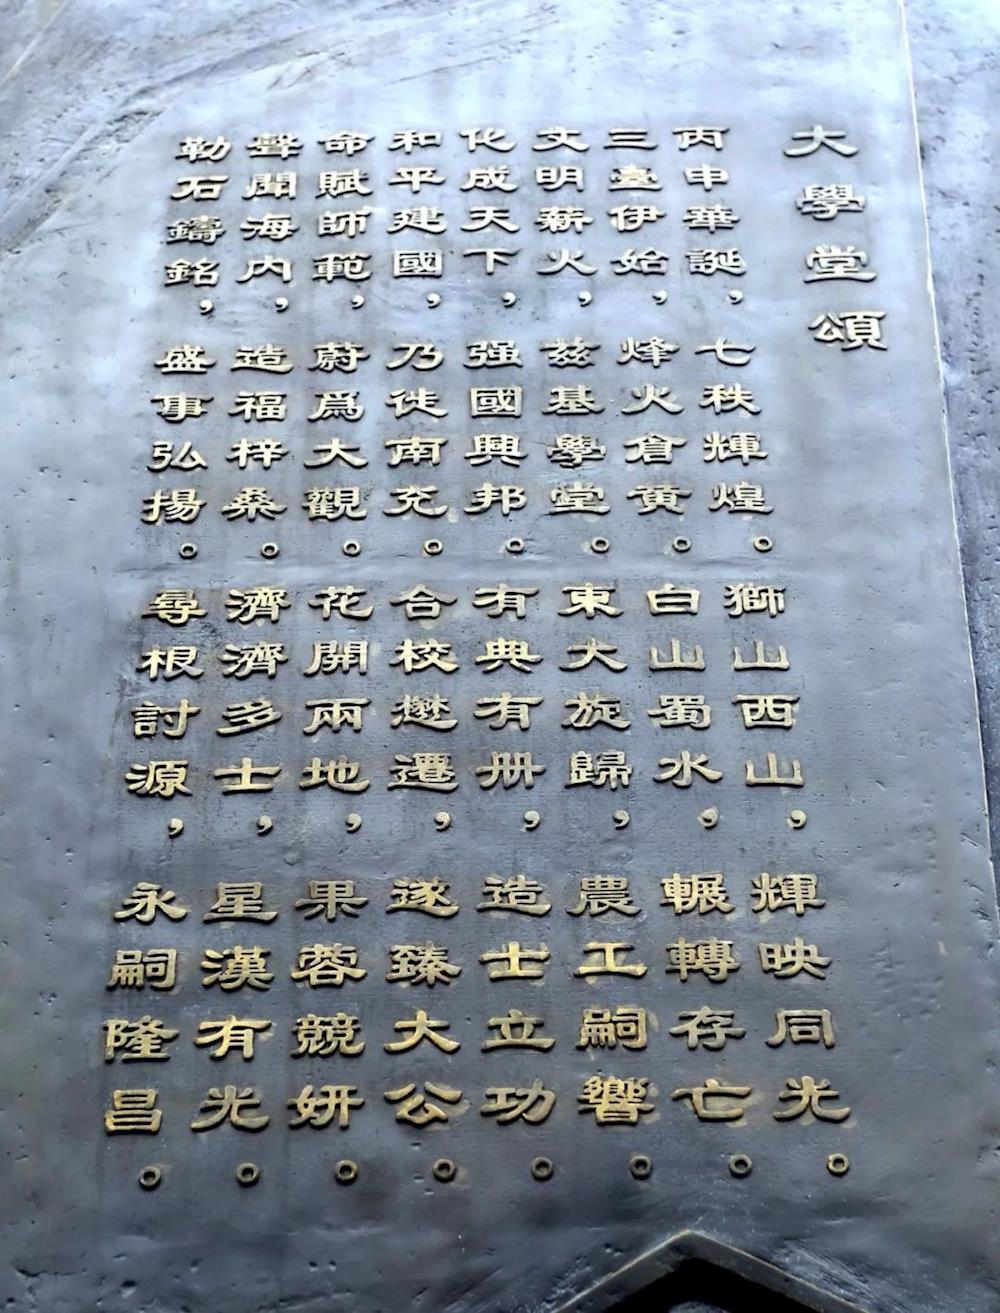 大學堂頌
丙申華誕，七秩輝煌。獅山西山，輝映同光。
三臺伊始，烽火倉黄。白山蜀水，輾轉存亡。
文明薪火，兹基學堂。東大旋歸，農工嗣響。
化成天下，强國興邦。有典有册，造士立功。
和平建國，乃徙南充。合校懋遷，遂臻大公。
命賦師範，蔚爲大觀。花開兩地，果蓉競妍。
聲聞海内，造福梓桑。濟濟多士，星漢有光。
勒石鑄銘，盛事弘揚。尋根討源，永嗣隆昌。